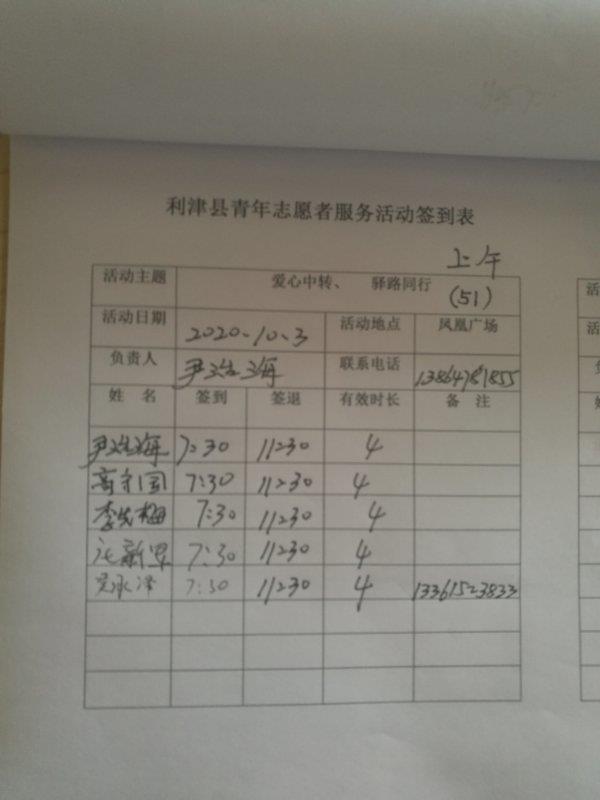 利津县青年志愿者服务活动签到表
上午
活动主题 爱心中转、 驿路同行 (51)
活动日期 2020.10.3 活动地点 凤凰广场
负责人 尹 海 联系电话 13864781855
姓 名 签到 签退 有效时长 备 注
尹 海 7:30 11:30 4
高守国 7:30 11:30 4
李先梅 7:30 11:30 4
新 7:30 11:30 4
吴永泽 7:30 11:30 4 13361523833